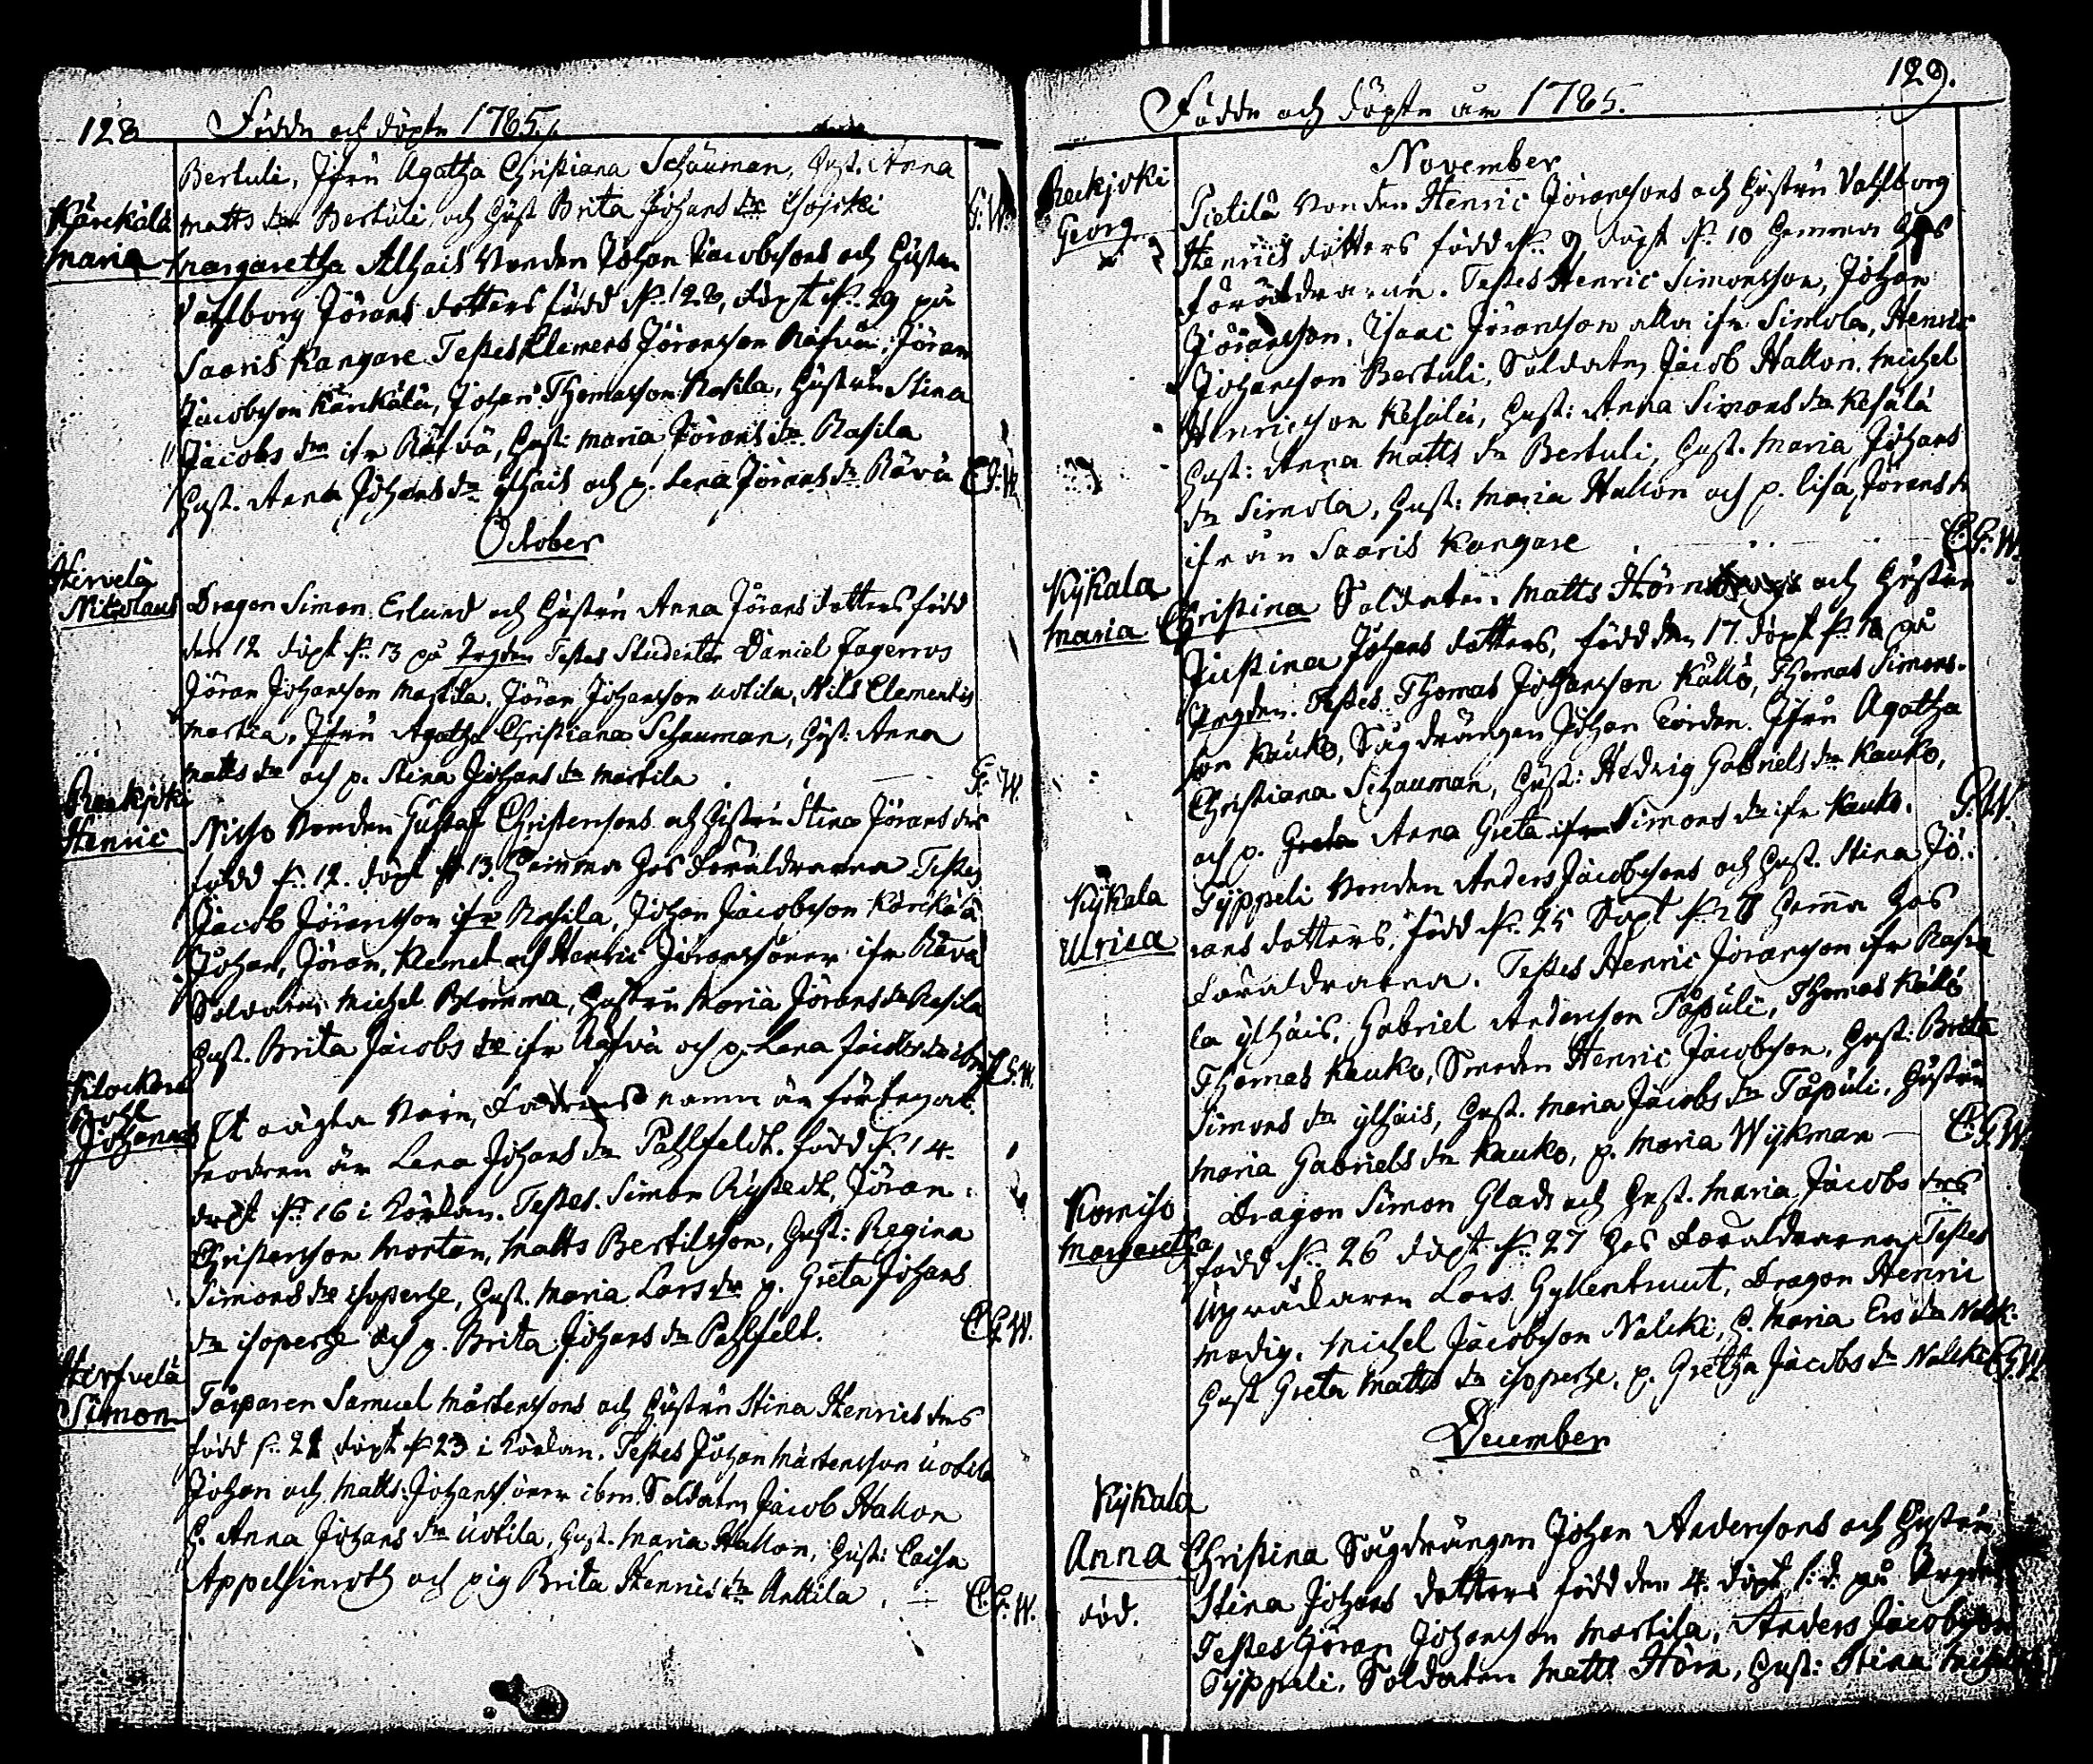 128 Födde och döpte 1785.
Bertuli, Jfru Agatha Christiana Schauman, Hust. Anna
Matts dr Bertuli, och Hust Brita Johans dr Isojoki G. W.
Kärekälä
Maria Margaretha Alhais Bonden Johan Jacobsons och Hustru
Valborg Jörans dotters född d. 28, döpt d. 29 på
Saaris Kangare. Testes Klemens Jöransson Räfvä, Jöran
Jacobsson Kärikälä, Johan Thomasson Rasila, Hustru Stina
Jacobs dr ifr Räfvä, Hust: Maria Jörans dr Rasila
Hust. Anna Johans dr ylhais och p. Lena Jörans dr Rävä C. G. W.
October
Hirvelä
Nikolaus Dragon Simon Erlund och Hustru Anna Jörans dotters född
den 12 döpt d. 13 på Prgden Testes Studenten Daniel Fagerros
Jöran Johansson Martila, Jöran Johansson Uotila, Nils Clementis
Martila, Jfru Agatha Christiana Schauman, Hust: Anna
Matts dr och p. Stina Johans dr Martila G. W.
Reekjoki
Henric Bonden Gustaf Christersons och Hustru Stina Jörans drs
född d. 12. döpt d. 13. Hemma hos Föräldrarna Testes
Jacob Jöransson ifr Rasila, Johan Jacobsson Kärikälä
Johan, Jöran, Klemet och Henric Jöranssöner ifr Rävä
Soldaten Michel Blomma, Hustru Maria Jörans dr Rasila
Hust. Brita Jacobs dr ifr Räfvä och p. Lena Jacobs dr ibm C. G. W.
Klockare
Bohl
Johannes Et oägta Barn, Fadrens namn är förtegat.
Modren är Lena Johans dr Pahlfeldt. född d. 14.
döpt d. 16 i Kÿrkan. Testes. Simon Rystedt, Jöran
Christersson Morten, Matts Bertilsson, Hust: Regina
Simons dr isoperhe, Hust. Maria Lars dr p. Greta Johans
dr isoperhe och p. Brita Johans dr Pahlfelt. C. G. W.
Hirfvelä
Simon Torparen Samuel Mårtenssons och Hustru Stina Henrics drs
född d. 22 döpt d. 23 i Kÿrkan. Testes Johan Mårtensson Uotila
Johan och Matts Johanssöner ibm. Soldaten Jacob Hallon
H. Anna Johans dr Uotila, Hust. Maria Hallon, Hust: Caisa
Appelsinroth och pig Brita Henrics dr Anttila C. G. W.
Födde och döpte år 1785. 129.
November
Reekjoki
Georg Pietilä Bonden Henric Jöranssons och Hustru Valborg
Henrics dotters född d. 9 döpt d. 10 Hemma hos
föräldrarne. Testes Henric Simonsson, Johan
Jöransson, Isaac Jöransson alla ifr. Simola, Henric
Johansson Bertuli, Soldaten Jacob Hallon, Michel
Henricsson Kesälä, Hust: Anna Simons dr Kesälä
Hust: Anna Matts dr Bertuli, Hust. Maria Johans
dr Simola, Hust: Maria Hallon och p. Lisa Jörans dr
ifrån Saaris Kangare C. G. W.
Kÿkala
Maria Christina Soldaten Matts Hörn och Hustru
Justina Johans dotters, född den 17. döpt d. 18 på
Prgden. Testes: Thomas Johansson Källö, Thomas Simons-
son Kauko, Sugdrängen Johan Jorden. Jfru Agatha
Christiana Schauman, Hust: Hedvig Gabriels dr Kauko,
och p. Greta Anna Greta Simons dr ifr Kauko. G. W.
Kÿkala
Ulrica Tÿppeli Bonden Anders Jacobssons och Hust. Stina Jö-
rans dotters, född d. 25 Döpt d. Hemma hos
Föräldrarna. Testes Henric Jöransson ifr
ylhäis, Gabriel Andersson Tapuli, Thomas Källö
Thomas Kauko, Smeden Henric Jacobsson, Hust: Brita
Simons dr ylhäis, Hust. Maria Jacobs dr Tapuli, Hustru
Maria Gabriels dr Kauko, p. Maria Wykman C. G. W.
Komiso
Margaretha Dragon Simon Glad och Hust. Maria Jacobs drs
född d. 26 döpt d. 27 hos Föräldrarna, Testes
Upsÿdaren Lars Gyllentruut, Dragon Henric
Modig. Michel Jacobsson Nälcki, H. Maria Ers dr Nälk:
Hust Greta Matts dr isoperhe, p. Gretha Jacobs dr Nälcki C. G. W.
December
Kÿkala
Anna Christina Sugdrängen Johan Anderssons och Hustru
död. Stina Johans dotters född den 4. döpt s. d. på Prgden
Testes Göran Johansson Martila, Anders Jacobsson
Tÿppeli, Soldaten Matts Hörn, Hust: Stina